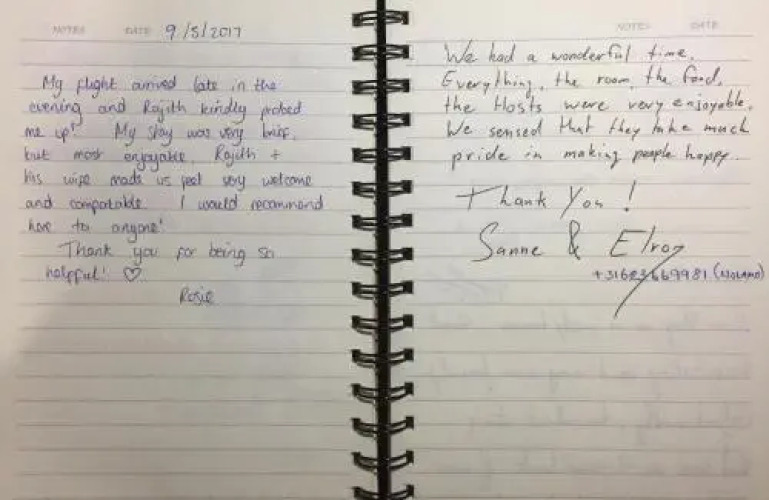 NOTES DATE 9/5/2017
My flight arrived late in the
evening and Rajith kindly picked
me up! My stay was very brief,
but most enjoyable. Rajith +
his wife made us feel very welcome
and comfortable. I would recommend
here to anyone!
Thank you for being so
helpful! ♡
Rosie
NOTES DATE
We had a wonderful time.
Everything, the room, the food,
the Hosts were very enjoyable.
We sensed that they take much
pride in making people happy.
Thank You!
Sanne & Elroy